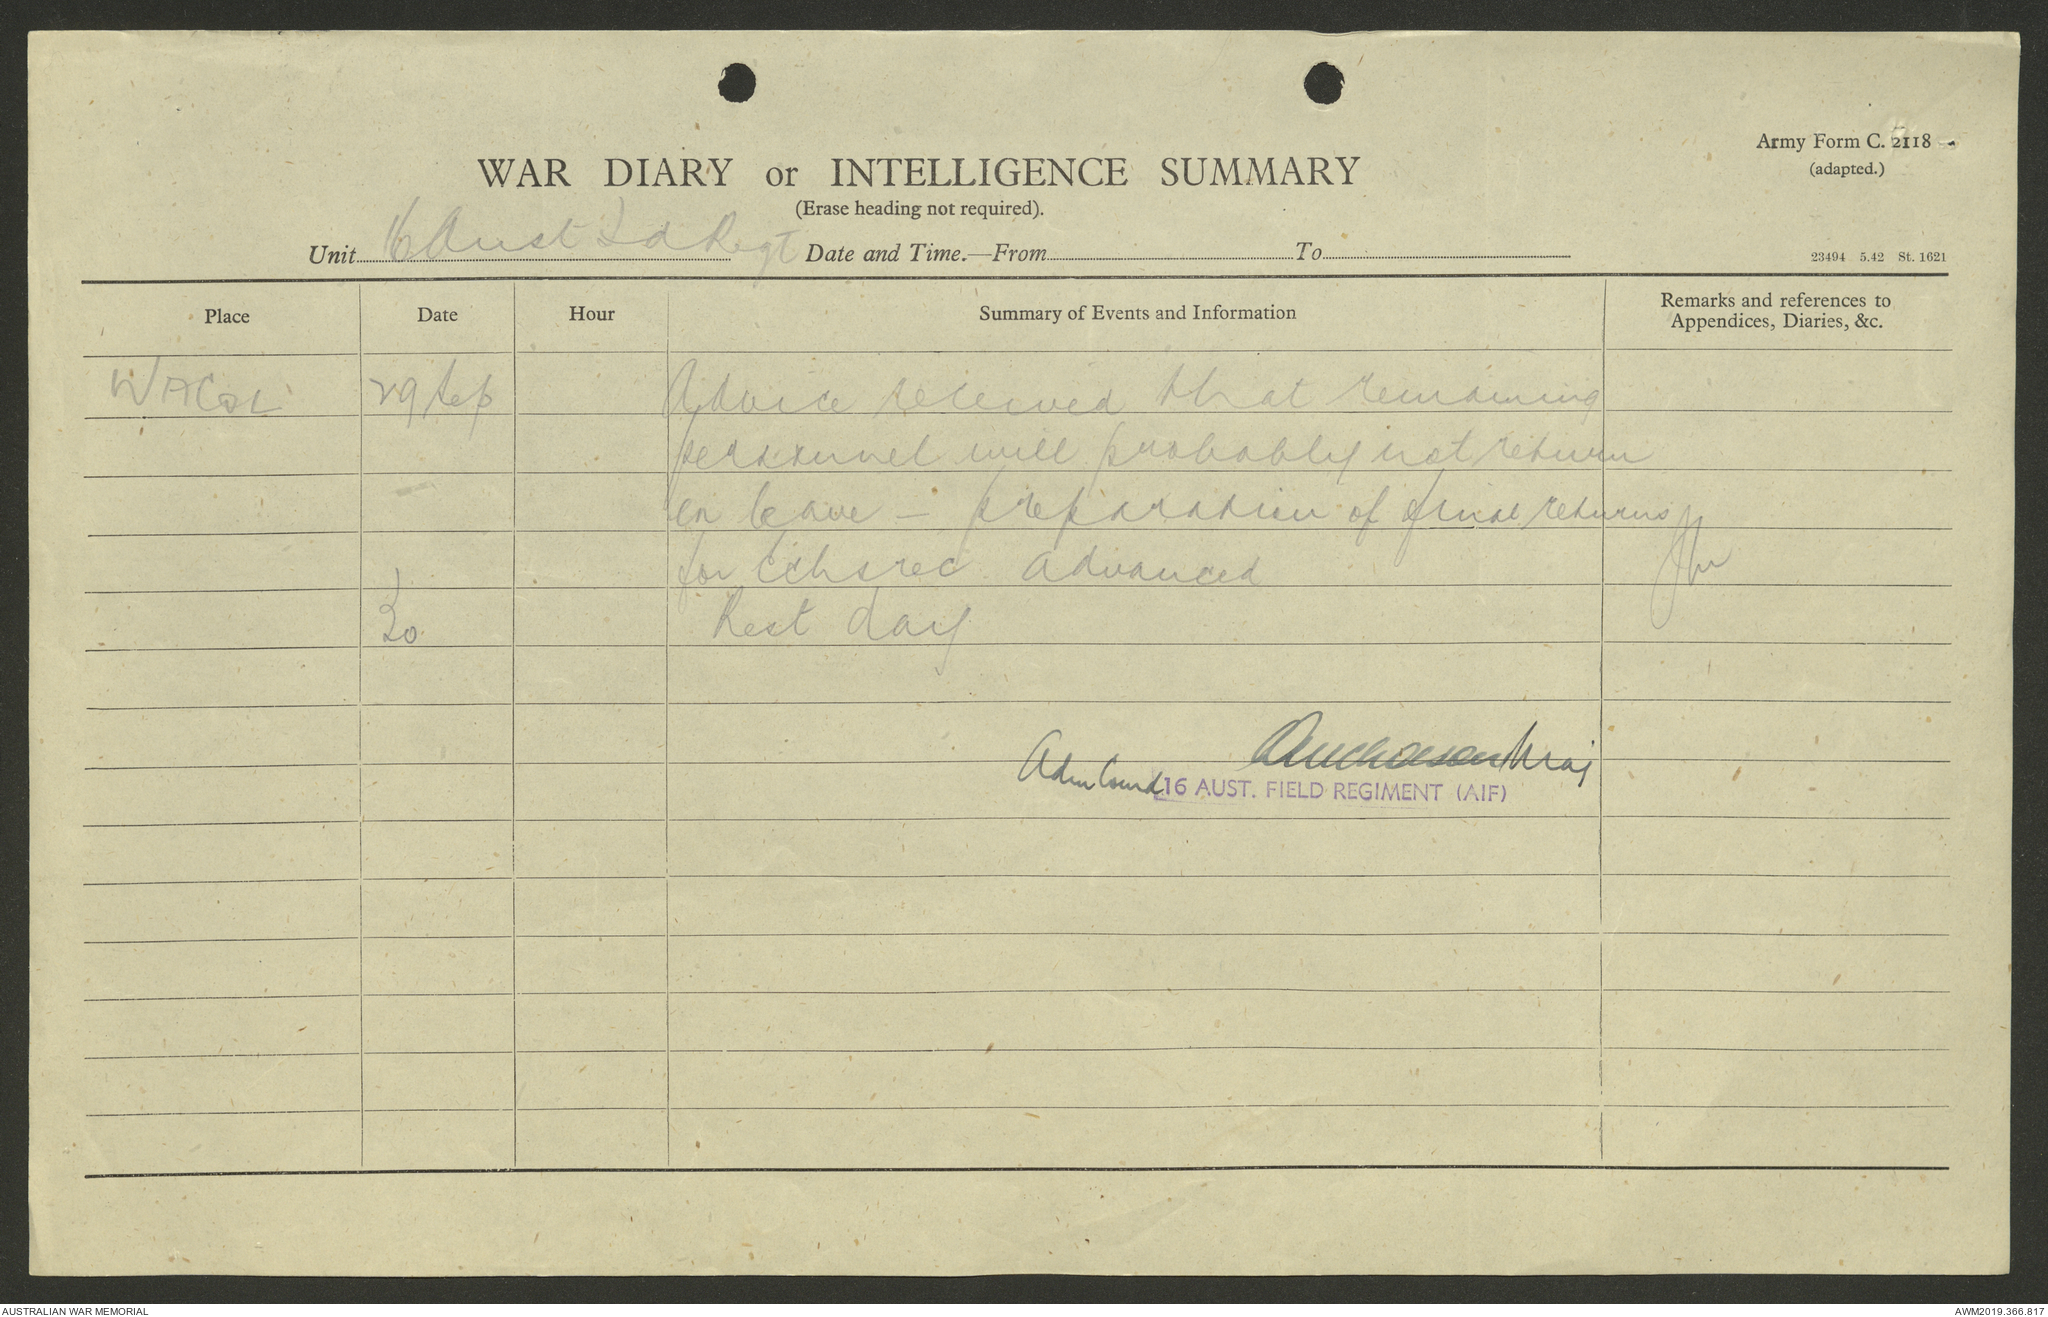 Army Form C. 2118
(adapted.)
WAR DIARY or INTELLIGENCE SUMMARY
(Erase heading not required).
Unit 16 Aust Fd Regt Date and Time.—From To
23494 5.42 St. 1621
Place Date Hour Summary of Events and Information Remarks and references to
Appendices, Diaries, &c.
WACOL 29 Sep Advice received that remaining
personnel will probably not return
on leave – preparation of final returns
for advanced
30 Rest day
Maj
Adm Comd 16 AUST. FIELD REGIMENT (AIF)
AUSTRALIAN WAR MEMORIAL
AWM2019.366.817